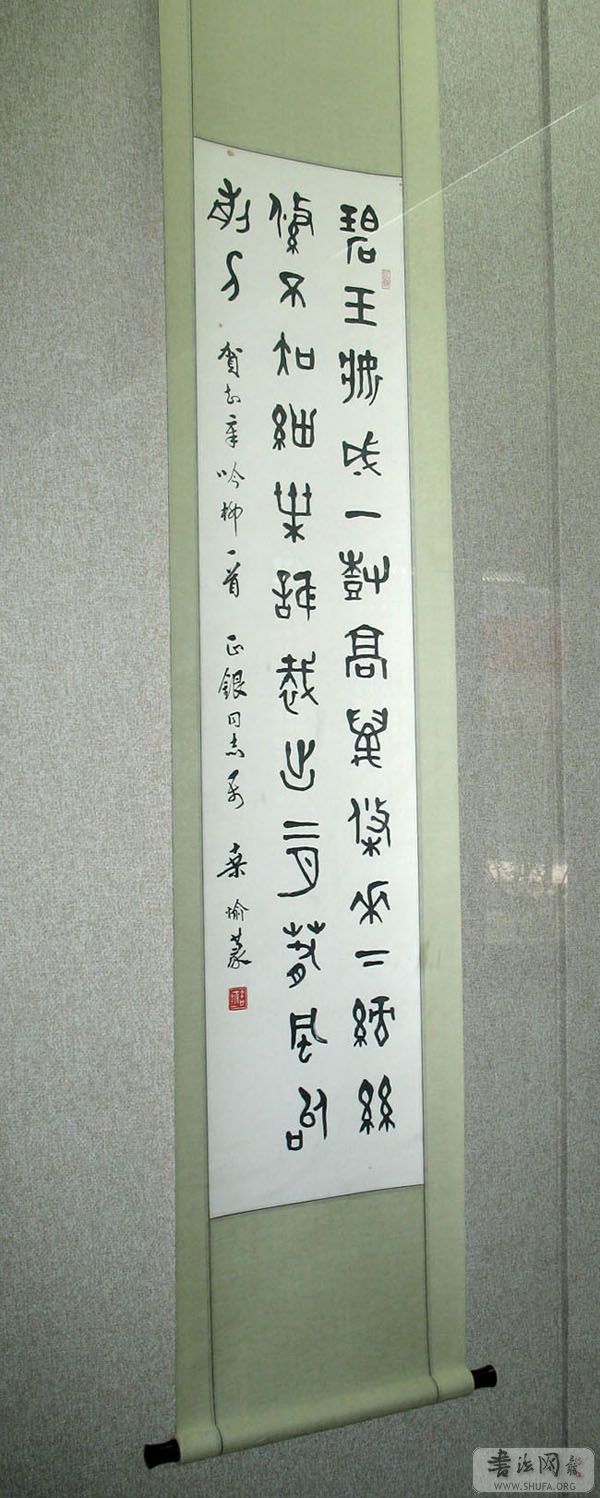 碧玉妝成一樹高萬條垂下綠絲
絛不知細葉誰裁出二月春風似
剪刀 賀知章吟柳一首 正銀同志屬 桑愉篆
書法网
WWW.SHUFA.ORG